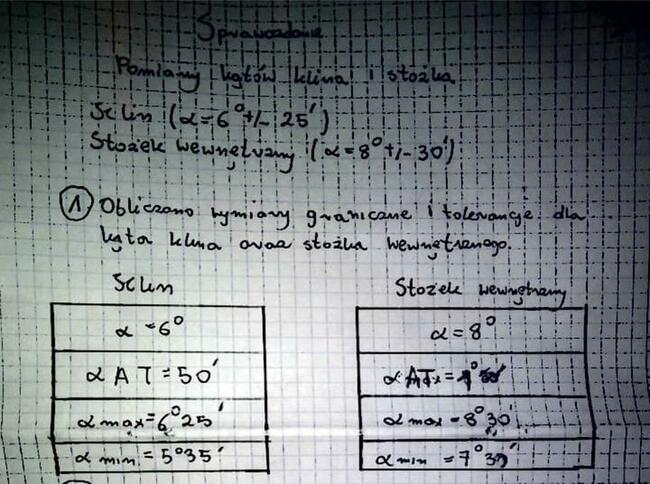 Sprawozdanie
Pomiary kątów klina i stożka
Klin (α=6°+/- 25')
Stożek wewnętrzny (α=8°+/-30')
① Obliczono wymiary graniczne i tolerancje dla
kąta klina oraz stożka wewnętrznego.
Klin
α = 6°
α AT = 50'
α max = 6°25'
α min = 5°35'
Stożek wewnętrzny
α = 8°
α AT
α max = 8°30'
α min = 7°30'